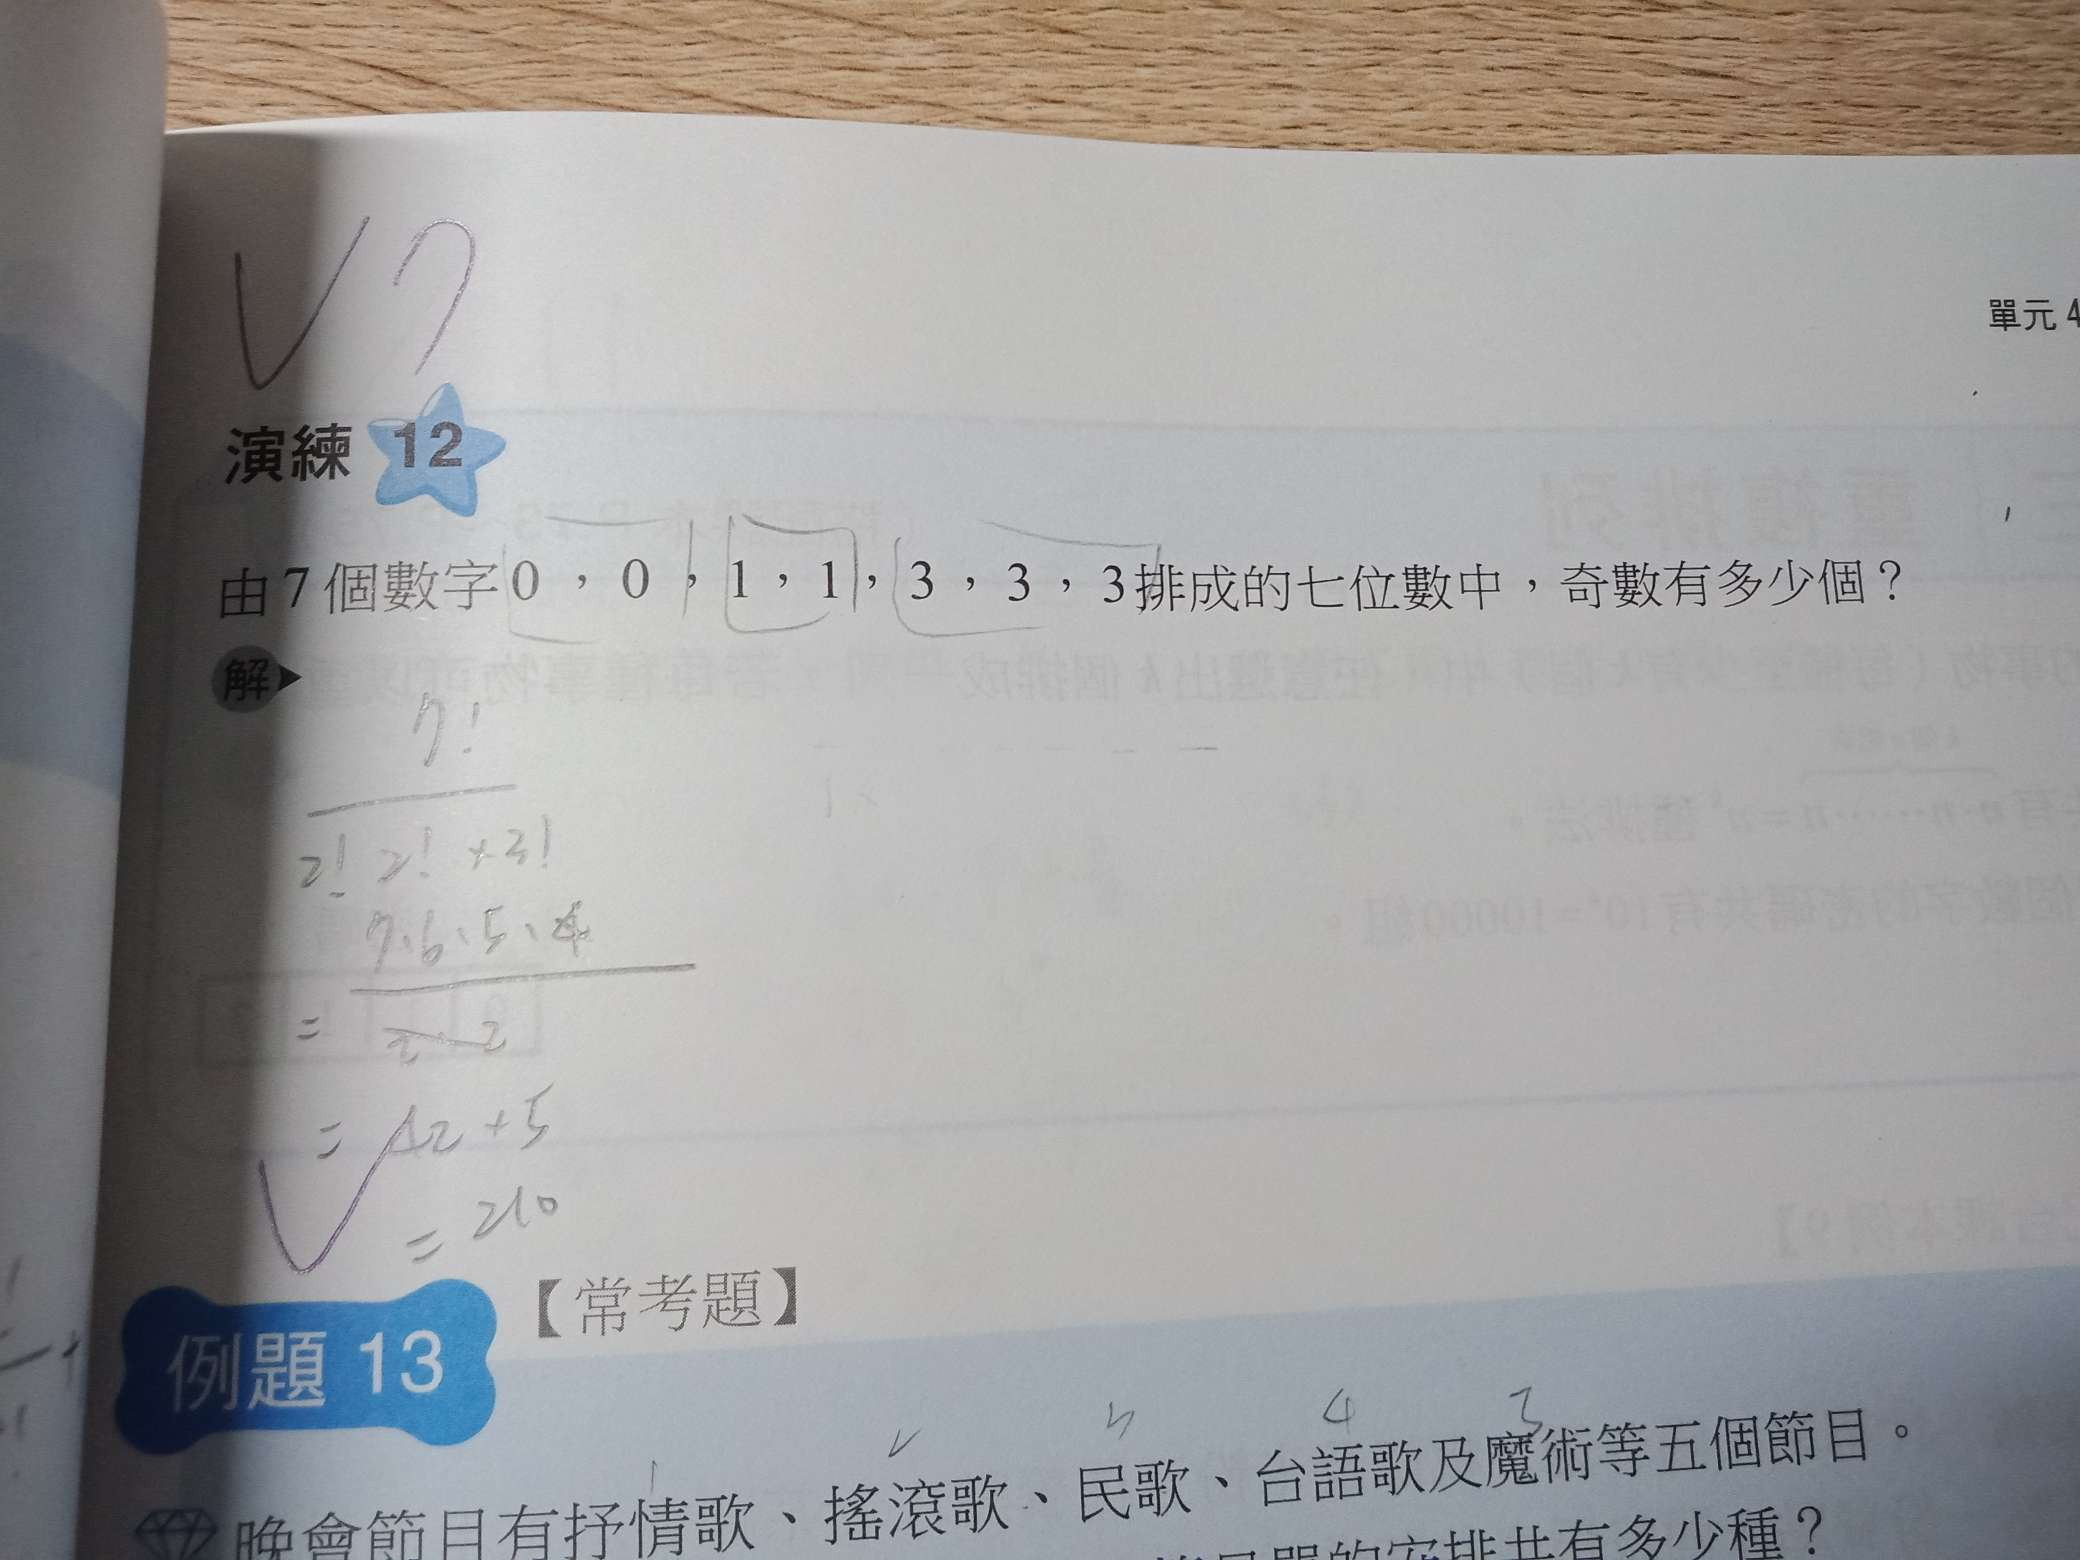 單元 4
演練 12
由 7 個數字 0，0，1，1，3，3，3 排成的七位數中，奇數有多少個？
解
7!
2! 2! × 3!
7·6·5·4
= 2·2
= 42 × 5
= 210
例題 13 【常考題】
1 2 4 3
晚會節目有抒情歌、搖滾歌、民歌、台語歌及魔術等五個節目。
節目單的安排共有多少種？